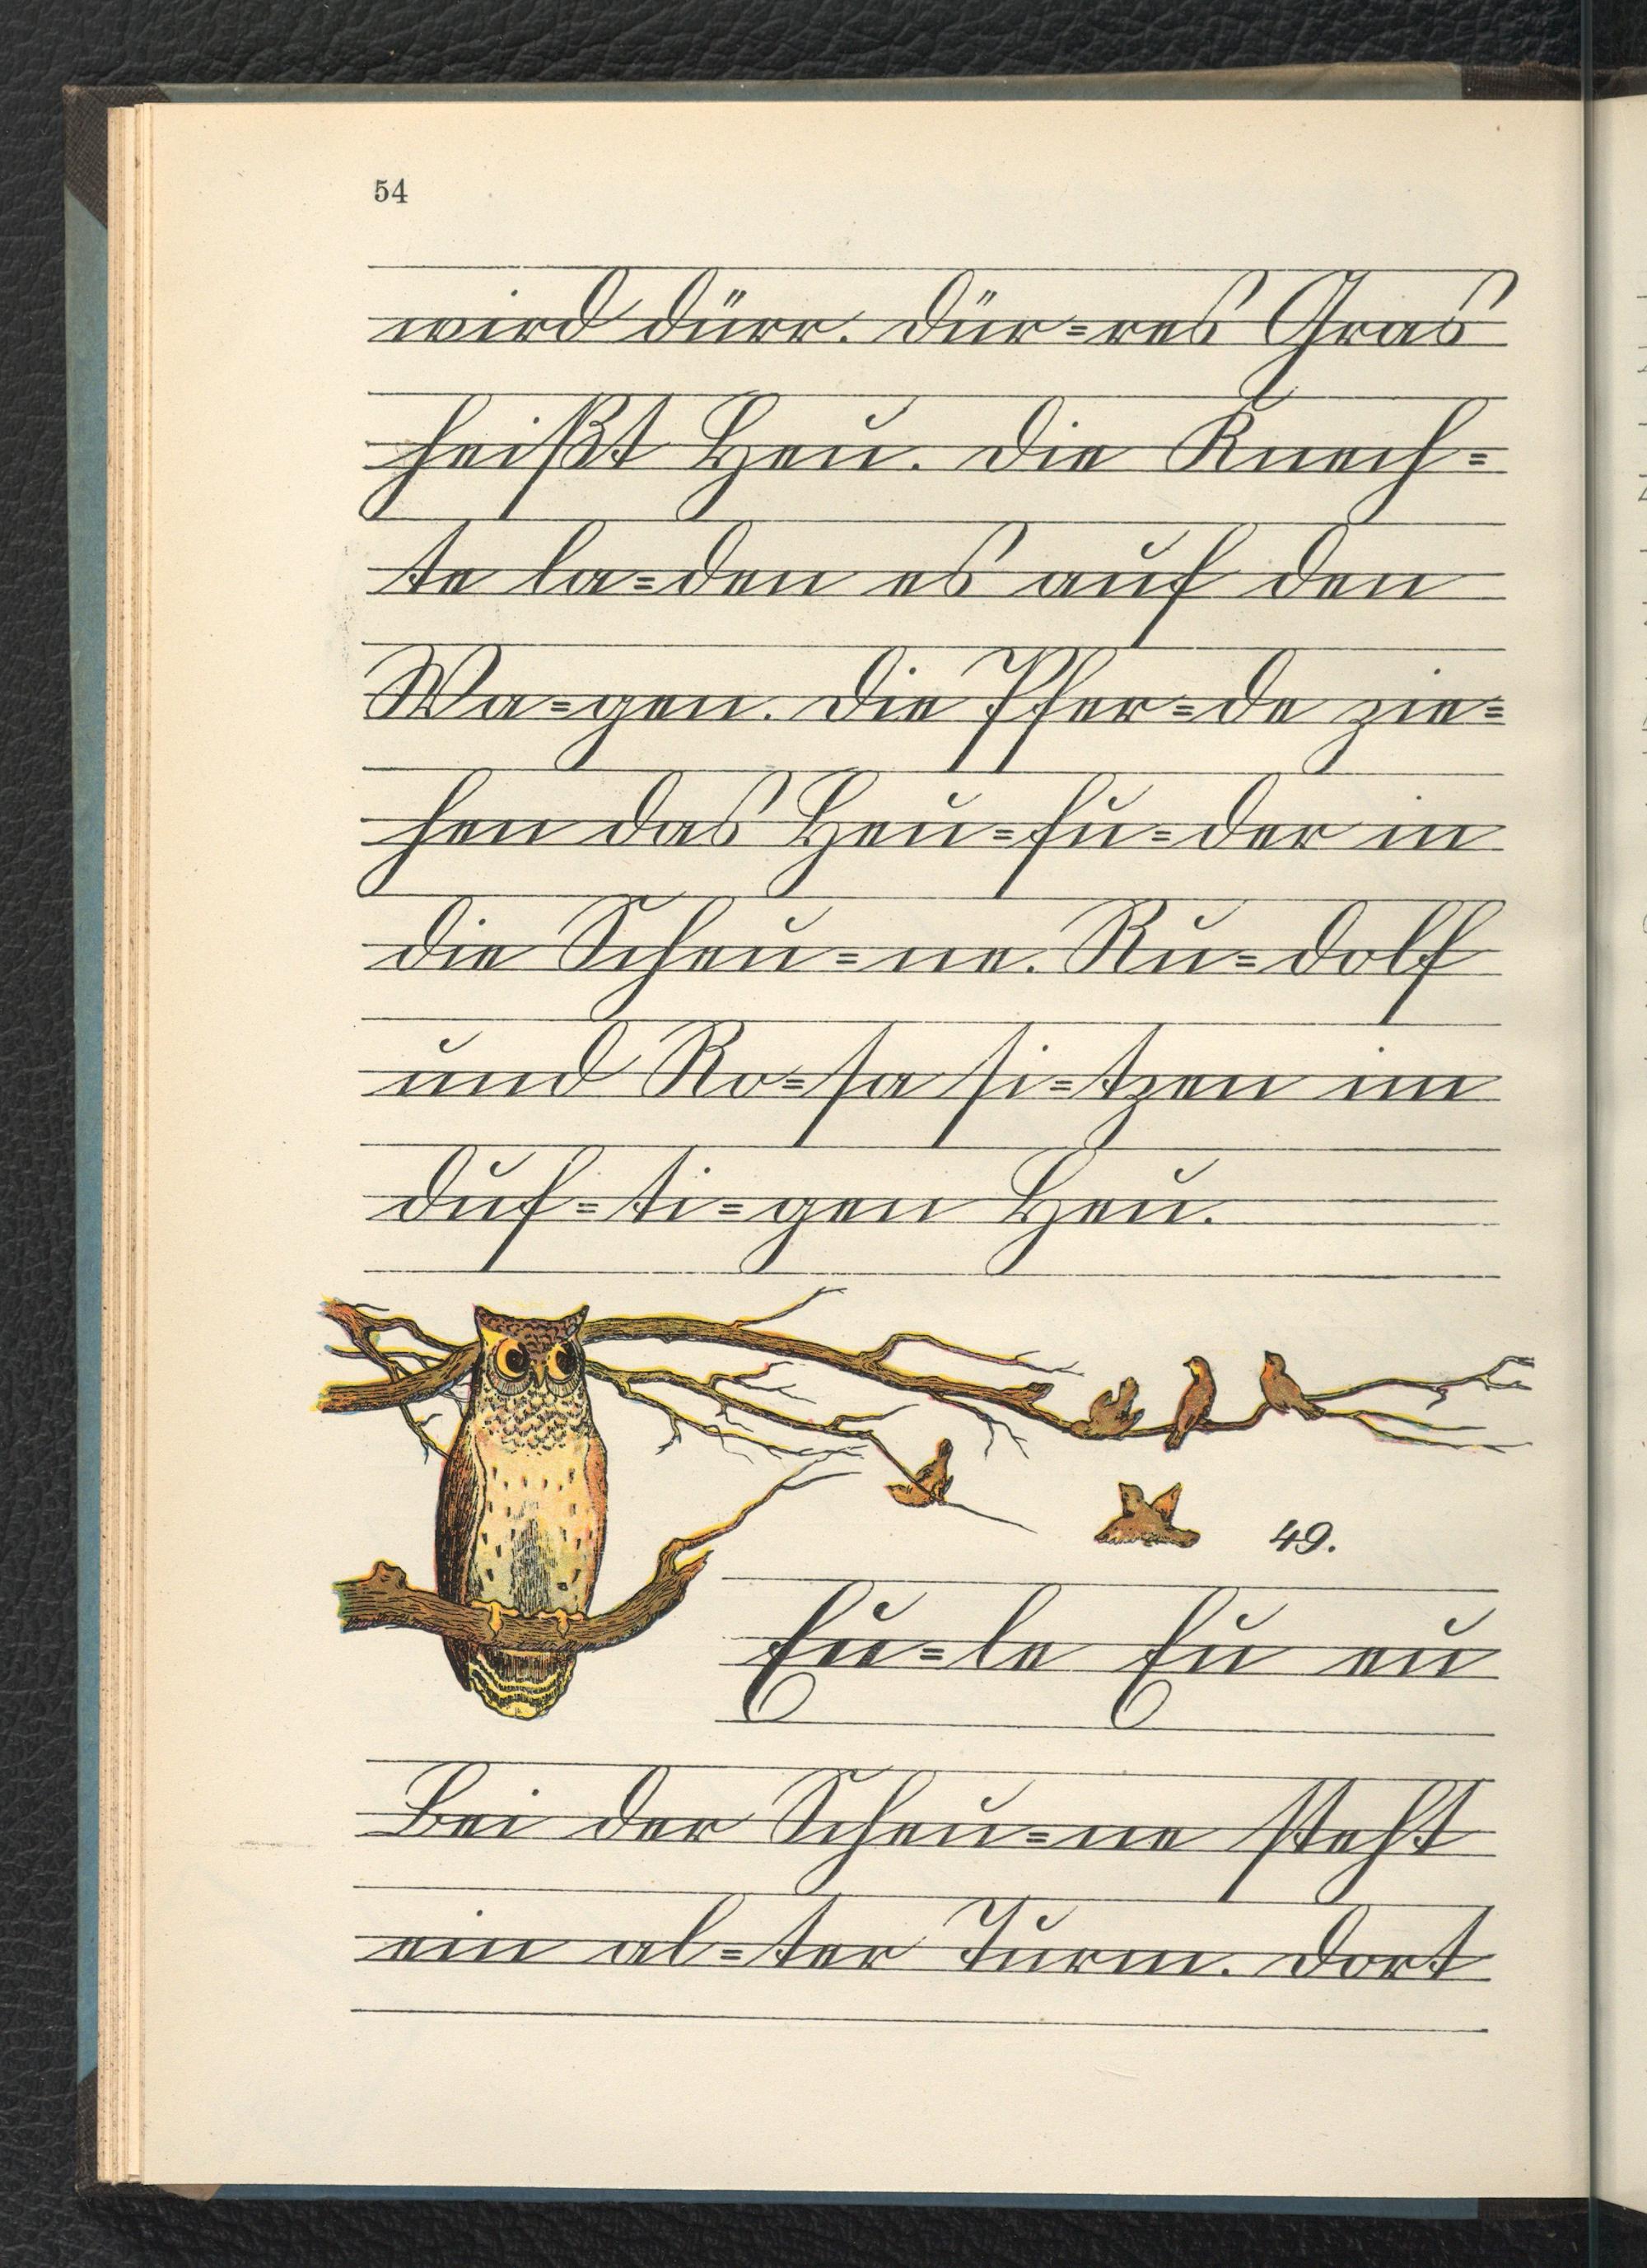 54
wird dürr. Dür=res Gras
heißt Heu. Die Knech=
te la=den es auf den
Wa=gen. Die Pfer=de zie=
hen das Heu=fu=der in
die Scheu=ne. Ru=dolf
und Ro=sa si=tzen im
duf=ti=gen Heu.
49.
Eu=le Eu eu
Bei der Scheu=ne steht
ein al=ter Turm. Dort